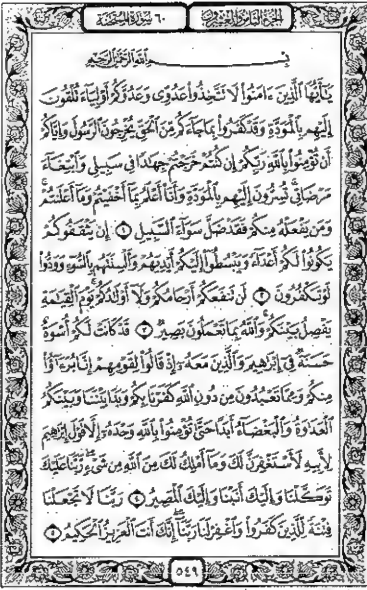 الجزء الثامن والعشرون
٦٠ سورة الممتحنة
بِسْمِ ٱللَّهِ ٱلرَّحْمَـٰنِ ٱلرَّحِيمِ
يَـٰٓأَيُّهَا ٱلَّذِينَ ءَامَنُوا۟ لَا تَتَّخِذُوا۟ عَدُوِّى وَعَدُوَّكُمْ أَوْلِيَآءَ تُلْقُونَ
إِلَيْهِم بِٱلْمَوَدَّةِ وَقَدْ كَفَرُوا۟ بِمَا جَآءَكُم مِّنَ ٱلْحَقِّ يُخْرِجُونَ ٱلرَّسُولَ وَإِيَّاكُمْ
أَن تُؤْمِنُوا۟ بِٱللَّهِ رَبِّكُمْ إِن كُنتُمْ خَرَجْتُمْ جِهَـٰدًا فِى سَبِيلِى وَٱبْتِغَآءَ
مَرْضَاتِى ۚ تُسِرُّونَ إِلَيْهِم بِٱلْمَوَدَّةِ وَأَنَا۠ أَعْلَمُ بِمَآ أَخْفَيْتُمْ وَمَآ أَعْلَنتُمْ ۚ
وَمَن يَفْعَلْهُ مِنكُمْ فَقَدْ ضَلَّ سَوَآءَ ٱلسَّبِيلِ ١ إِن يَثْقَفُوكُمْ
يَكُونُوا۟ لَكُمْ أَعْدَآءً وَيَبْسُطُوٓا۟ إِلَيْكُمْ أَيْدِيَهُمْ وَأَلْسِنَتَهُم بِٱلسُّوٓءِ وَوَدُّوا۟
لَوْ تَكْفُرُونَ ٢ لَن تَنفَعَكُمْ أَرْحَامُكُمْ وَلَآ أَوْلَـٰدُكُمْ ۚ يَوْمَ ٱلْقِيَـٰمَةِ
يَفْصِلُ بَيْنَكُمْ ۚ وَٱللَّهُ بِمَا تَعْمَلُونَ بَصِيرٌ ٣ قَدْ كَانَتْ لَكُمْ أُسْوَةٌ
حَسَنَةٌ فِىٓ إِبْرَٰهِيمَ وَٱلَّذِينَ مَعَهُۥٓ إِذْ قَالُوا۟ لِقَوْمِهِمْ إِنَّا بُرَءَٰٓؤُا۟
مِنكُمْ وَمِمَّا تَعْبُدُونَ مِن دُونِ ٱللَّهِ كَفَرْنَا بِكُمْ وَبَدَا بَيْنَنَا وَبَيْنَكُمُ
ٱلْعَدَٰوَةُ وَٱلْبَغْضَآءُ أَبَدًا حَتَّىٰ تُؤْمِنُوا۟ بِٱللَّهِ وَحْدَهُۥٓ إِلَّا قَوْلَ إِبْرَٰهِيمَ
لِأَبِيهِ لَأَسْتَغْفِرَنَّ لَكَ وَمَآ أَمْلِكُ لَكَ مِنَ ٱللَّهِ مِن شَىْءٍ ۖ رَّبَّنَا عَلَيْكَ
تَوَكَّلْنَا وَإِلَيْكَ أَنَبْنَا وَإِلَيْكَ ٱلْمَصِيرُ ٤ رَبَّنَا لَا تَجْعَلْنَا
فِتْنَةً لِّلَّذِينَ كَفَرُوا۟ وَٱغْفِرْ لَنَا رَبَّنَآ ۖ إِنَّكَ أَنتَ ٱلْعَزِيزُ ٱلْحَكِيمُ ٥
٥٤٩